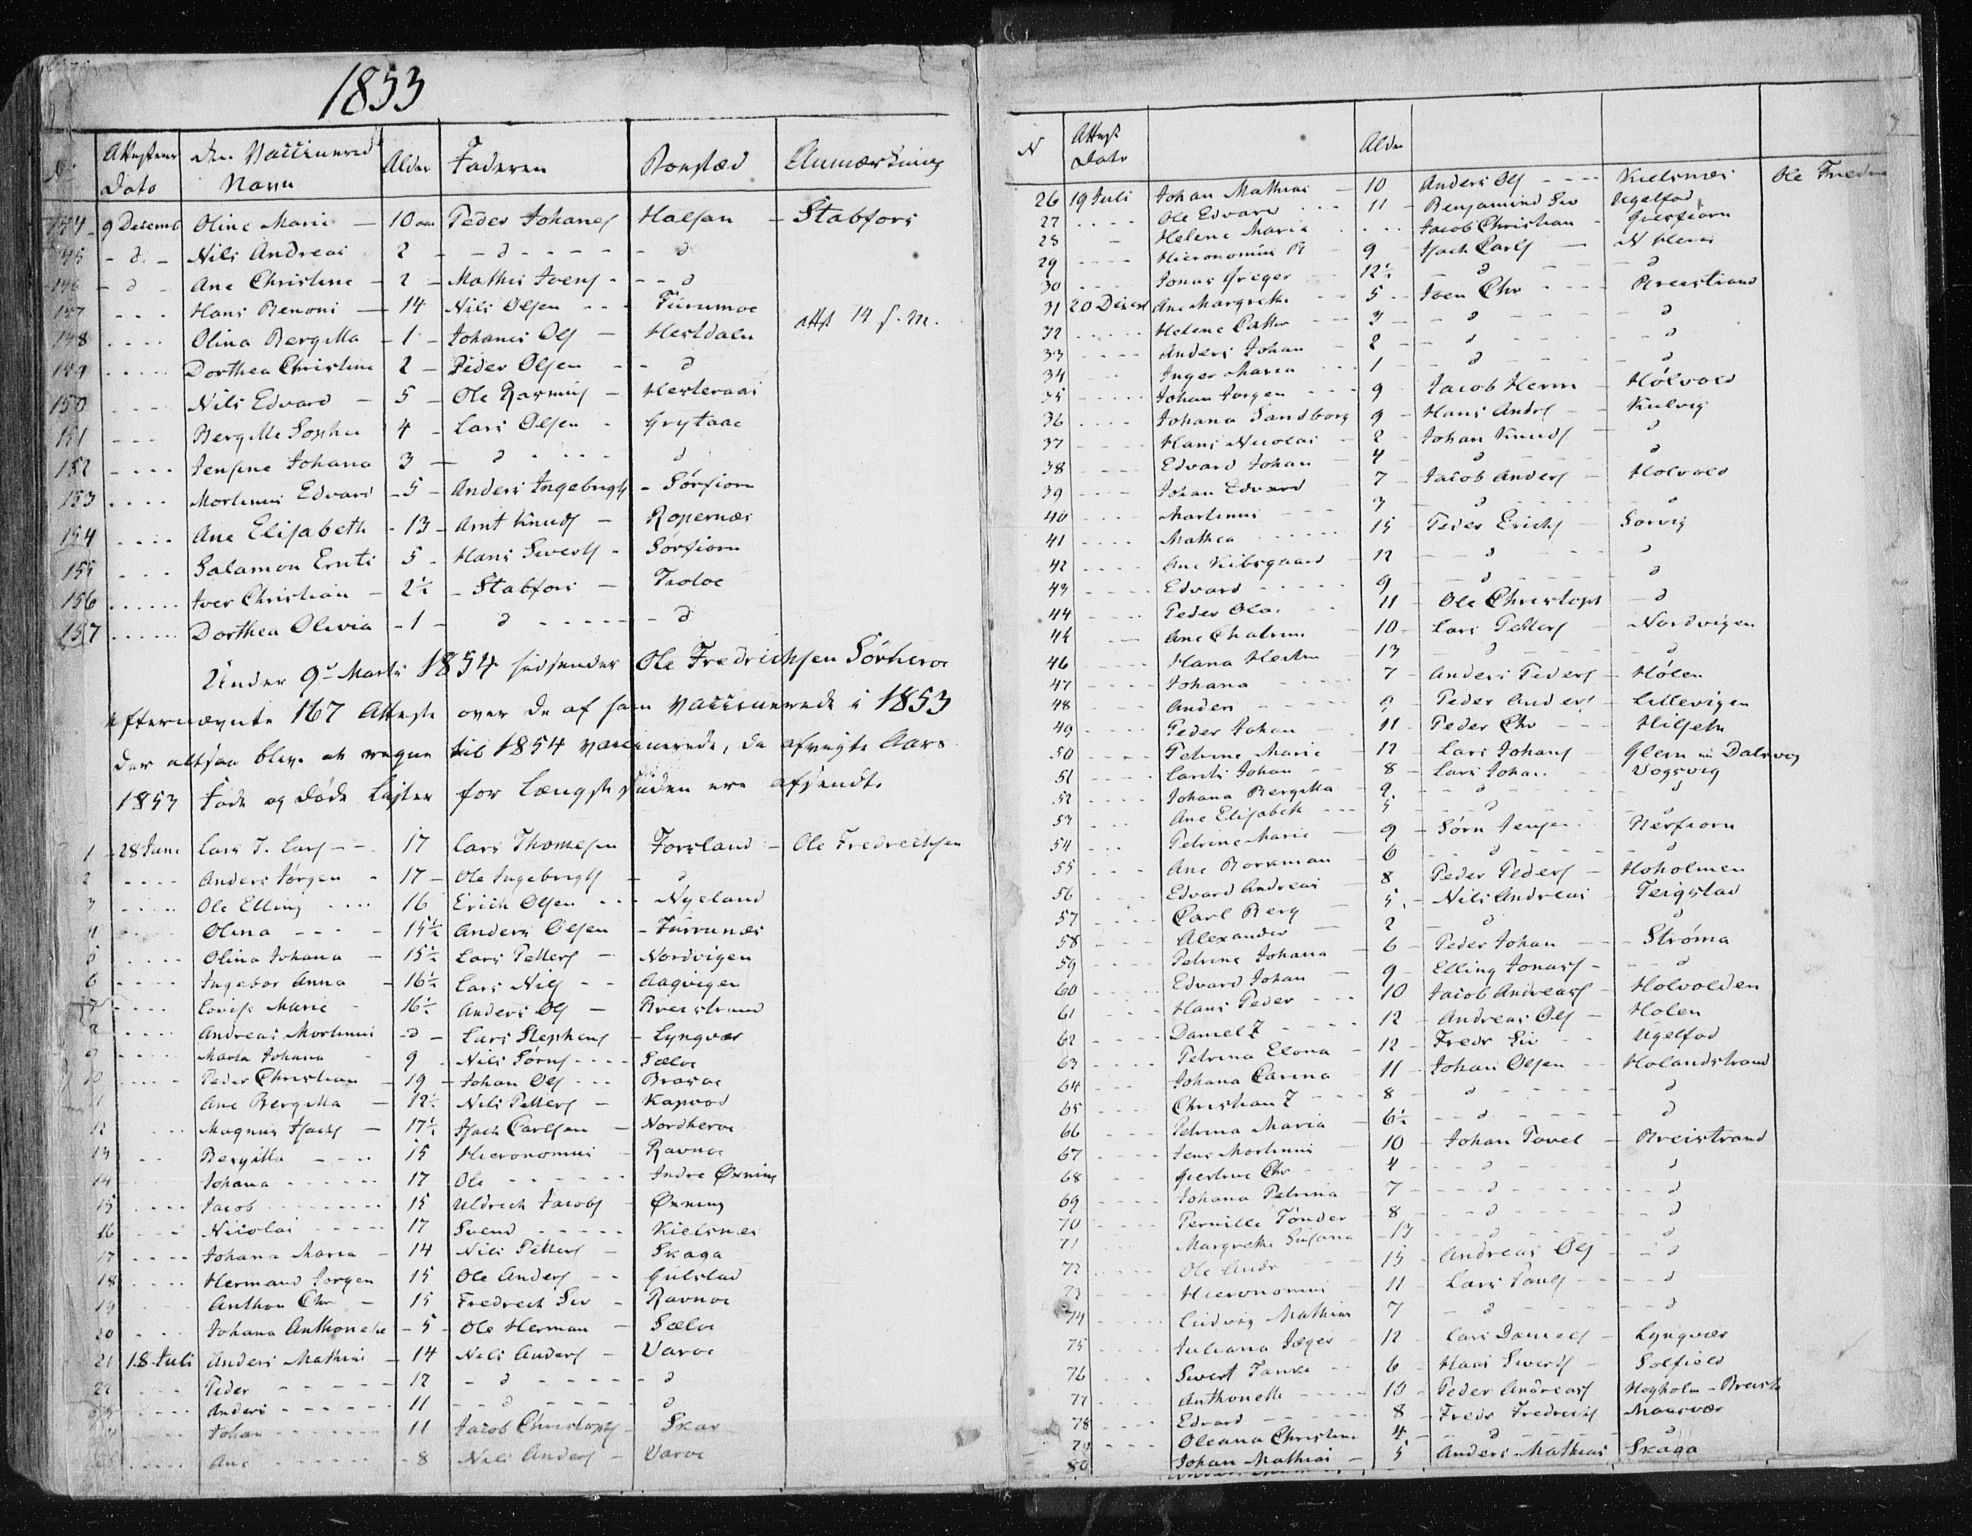 1853
No Attestens Dato Den Vaccinerede Navn Alder Faderen Bonsted Anmærkning
144 9 Desemb Oline Marie 10 aar Peder Johanes Halsan Stabfors
145 - d - Nils Andreas 2 - d - - d
146 - d - Ane Christine 2 Mathis Ivers - d
147 Hans Benoni 14 Nils Olsen Furumoe attst 14 s. M.
148 Olina Bergitta 1 Johanes Ols Hestdaln
149 Dorthea Christine 2 Peder Olsen - d
150 Nils Edvard 5 Ole Rasmus Hesteraas
151 Bergitte Sophie 4 Lars Olsen Grytaae
152 Jensine Johana 3 - d - d
153 Mortinus Edvard 5 Anders Ingebrigts Sørfiorn
154 Ane Elisabeth 13 Arnt Knuds Ropernæs
155 Salamon Ernts 5 Hans Siverts Sørfiorn
156 Iver Christian 2½ Stabfors Troloe
157 Dorthea Olivia 1 d - d
Under 9de Marts 1854 indsender Ole Fredrichsen Sørheroe
efternævnte 167 Attester over de af ham vaccinerede i 1853
der altsaa blive at regne til 1854 vaccinerede, da afvigte Aars
1853 Føde og Døde Lister for længst siden ere afsendt.
1 28 Juni Lars T. Lars 17 Lars Thomesen Forsland Ole Fredrechsen
2 Anders Jørgen 17 Ole Ingebrigts - d
3 Ole Elling 16 Erich Olsen Nyeland
4 Olina 15½ Anders Olsen Furrunæs
5 Olina Johana 15½ Lars Petters Nordvigen
6 Ingebor Anna 16½ Lars Nils Aagvigen
7 Lovise Marie 16½ Anders Ols Breistrand
8 Andreas Mortinus d Lars Stephens Lyngvær
9 Marta Johana 9 Nils Sørns Sæloe
10 Peder Christian 19 Johan Ols Brasoe
11 Ane Bergitta 12½ Nils Petters Kapvod
12 Magnus Isachs 17½ Isach Carlsen Nordheroe
13 Bergitta 15 Hieronomus Ravnoe
14 Johana 17 Ole Indre Øxning
15 Jacob 15 Uldrich Jacobs Øxning
16 Nicolai 17 Svend Kielsnes
17 Johana Maria 14 Nils Petters Skaga
18 Hermand Jørgen 15 Ole Anders Gulstad
19 Anthon Chr 15 Fredrech Siv Ravnoe
20 Johana Anthonete 5 Ole Herman Sæloe
21 18 Juli Anders Mathias 14 Nils Anders Varoe
22 Peder 12 - d - d
23 Anders 11 - d d
Johan 11 Jacob Christophs Skar
Ane 8 Nils Anders Varoe
N Attest Dato Alder
26 19 Juli Johan Mathias 10 Anders Ols Kielsnæs Ole Fredr
27 Ole Edvard 11 Benjamind Siv Ugelfod
28 Helene Maria Jacob Christian
29 Hieronimus B 9 Isach Carls N Heroe
30 Jonas Greger 12½ - d - d
31 20 Desemb Ane Margrethe 5 Iven Chr Breistrand
32 Helene Cathr 3 - d - d
33 Anders Johan 2 - d - d
34 Inger Maria 1 - d - d
35 Johan Jørgen 9 Jacob Herm Hølvold
36 Johana Sandborg 9 Hans Andrs Kulvig
37 Hans Nicolai 2 Johan Knuds d
38 Edvard Johan 4 d d
39 Johan Edvard 7 Jacob Anders Holvold
40 Martinus 3 - d - d
41 Mathea 15 Peder Erichs Sorvig
42 Ane Kibsgaard 12 - d d
43 Edvard 9 - d d
44 Peder Olai 11 Ole Christoph d
45 Ane Chatrine 10 Lars Petters Nordvigen
46 Hana Hestn 13 - d d
47 Johana 7 Anders Peders Hølen
48 Anders 9 Peder Anders Lillevigen
49 Peder Johan 11 Peder Chr Hilseth
50 Petrine Marie 12 Lars Johans Glein in Dalsvog
51 Larits Johan 8 Lars Johan Vogsvig
52 Johana Bergitta 9 - d d
53 Ane Elisabeth 5 - d d
54 Petrine Marie 9 Sørn Jenssen Nerfiorn
55 Ane Borkman 6 - d d
56 Edvard Andreas 8 Peder Peders Hoholmen
57 Carl Berg 5 Nils Andreas Teigstad
58 Alexander 2 - d d
59 Petrine Johana 6 Peder Johan Strøma
60 Edvard Johan 9 Elling Jonass - d
61 Hans Peder 10 Jacob Andreass Holvolden
62 Daniel Z 12 Andreas Ols Holen
63 Petrina Elona 12 Fredr Siv Ugelfod
64 Johana Carina 11 Johan Olsen Holandstrand
65 Christian Z 8 d d
66 Petrina Maria 6½ - d d
67 Jens Mortinus 10 Johan Povel Breistrand
68 Giertine Chr 4 - d d
69 Johana Petrina 7 - d d
70 Pernille Tønder 8 - d d
71 Margrethe Susana 13 - d d
72 Ole Andr 15 Andreas Ols d
73 Hieronomus 11 Lars Pauls d
74 Ludvig Mathias 7 - d d
75 Juliana Jæger 12 Lars Daniels Lyngvær
76 Sivert Tanke 6 Hans Siverts Solfield
77 Anthonette 13 Peder Andreass Høgholm - Breist
78 Edvard 8 Fredr Fredrichs Maasvær
79 Oleana Christine 4 - d d
80 Johan Mathias 5 Anders Mathias Skaga